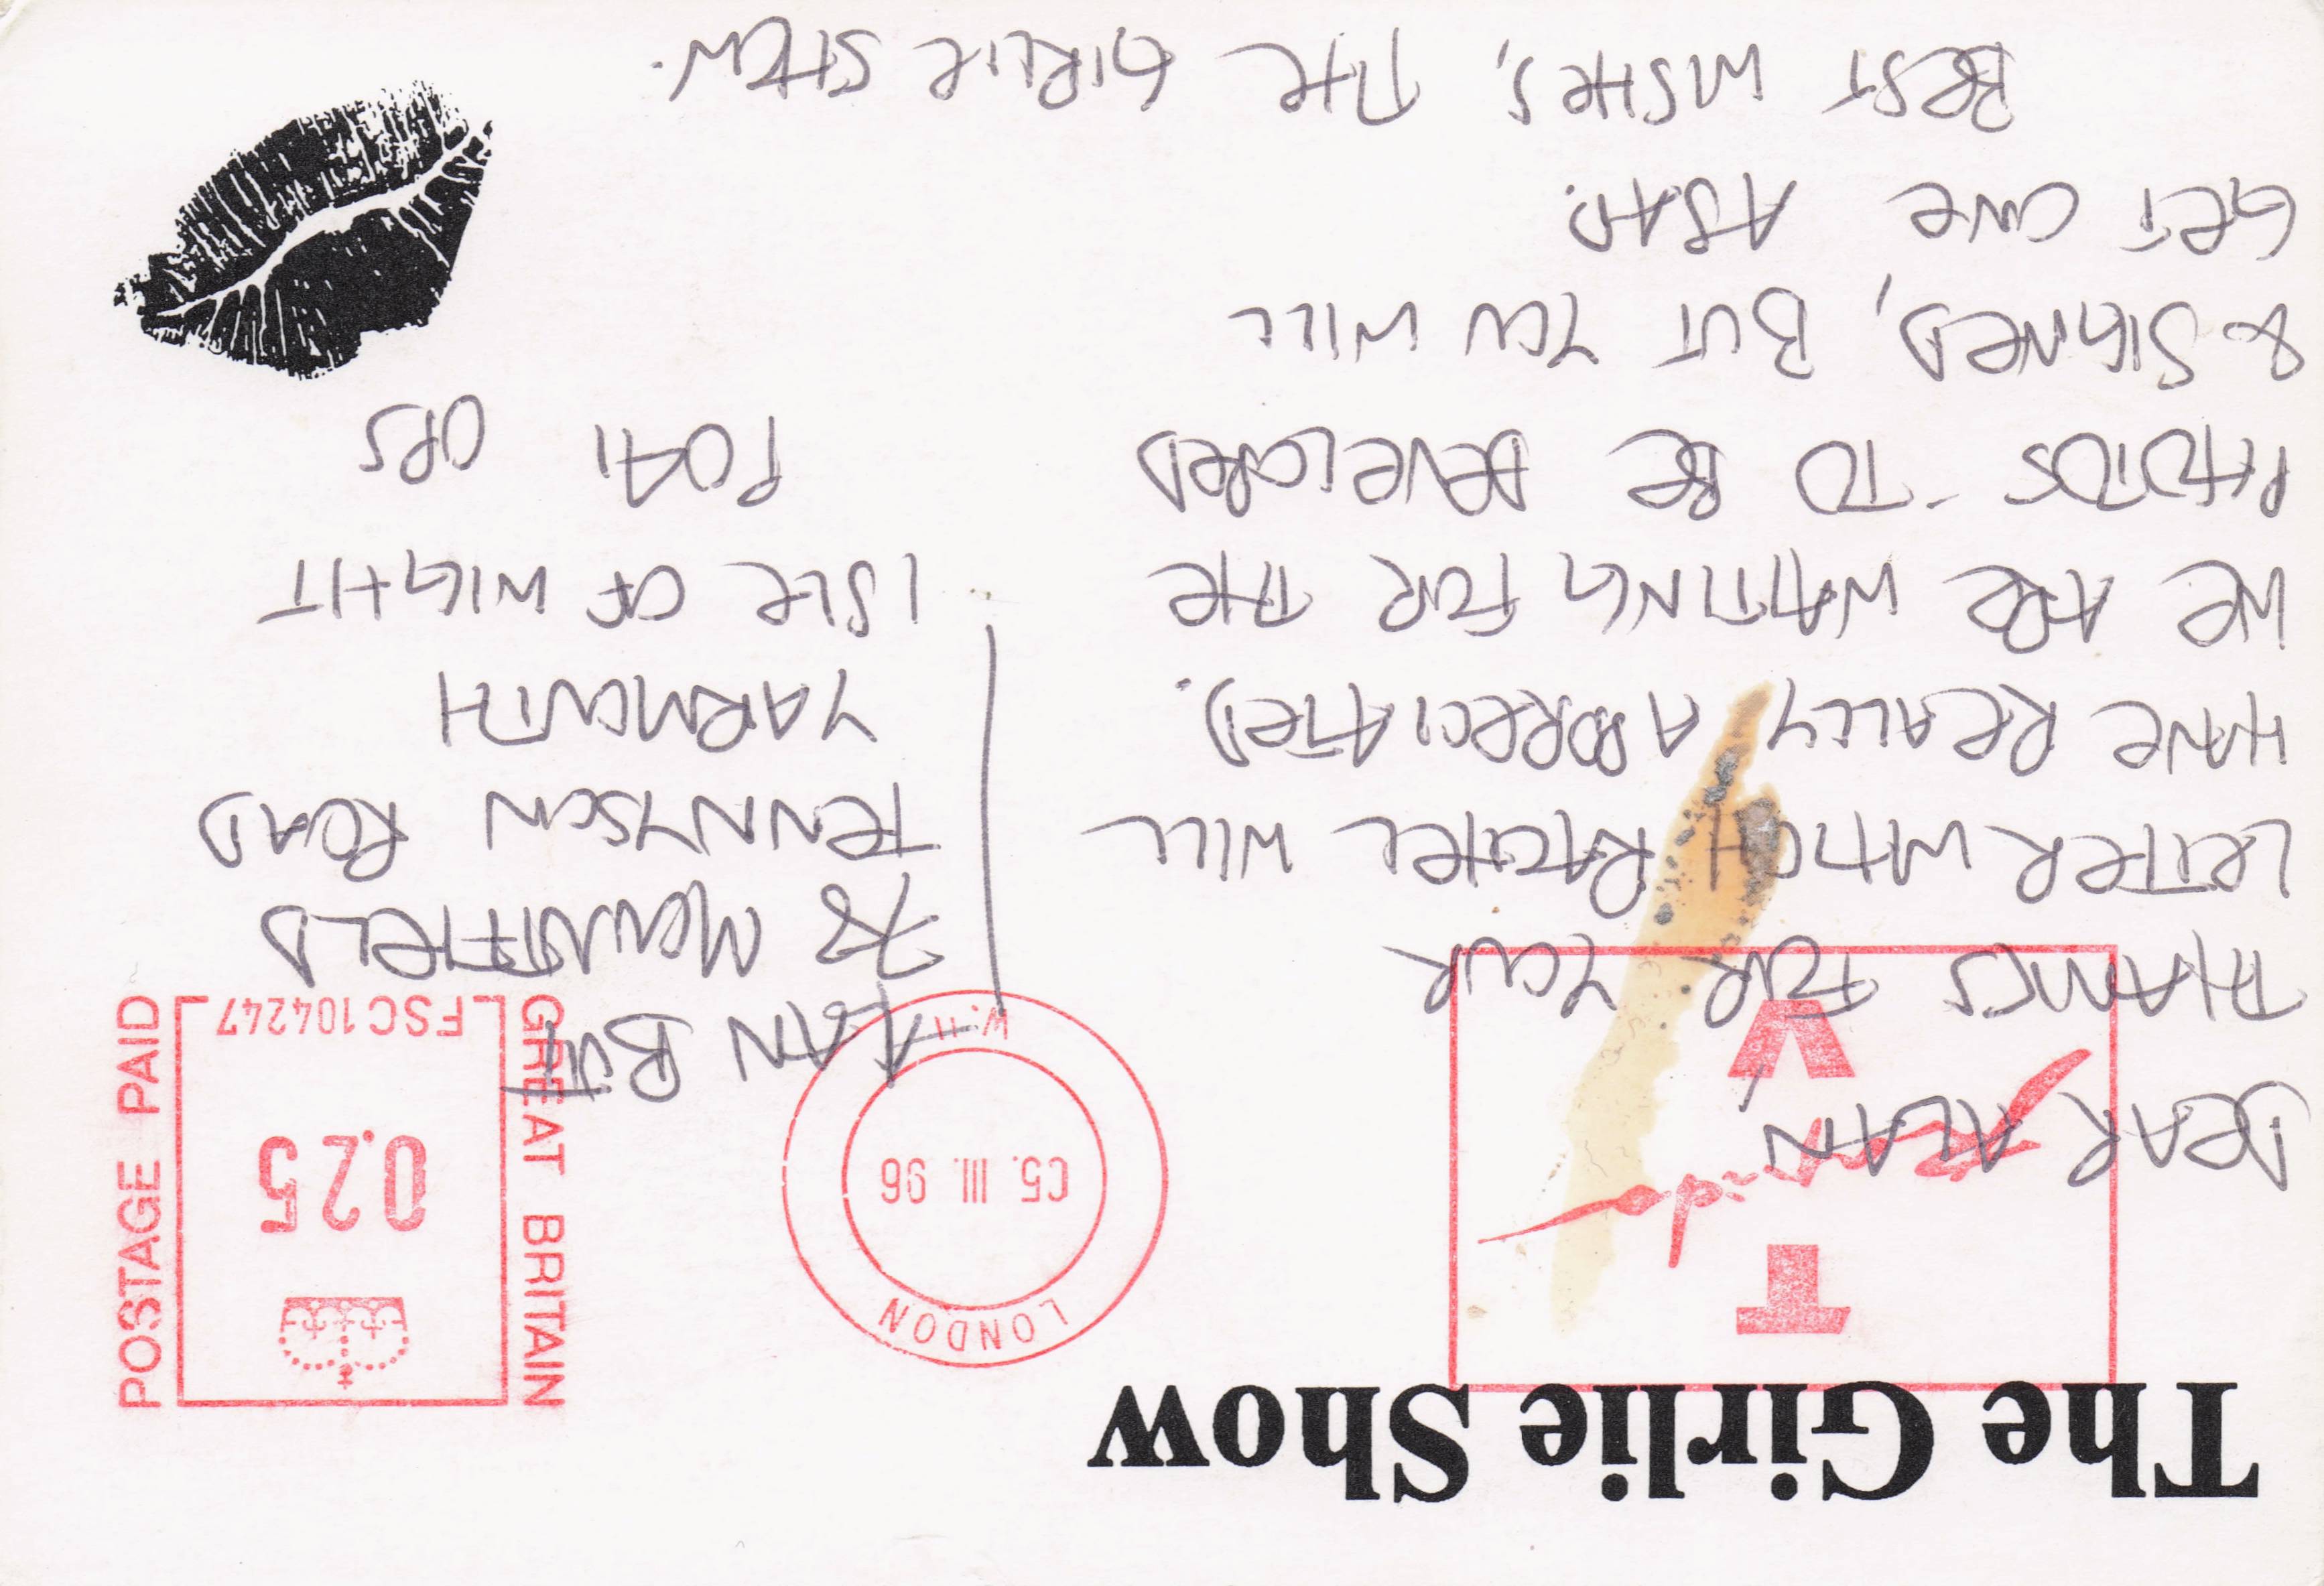 The Girlie Show
T
Rapido
V
LONDON
05. III. 96
W.11
GREAT BRITAIN
0.25
FSC104247
POSTAGE PAID
DEAR ALAN,
THANKS FOR YOUR
LETTER WHICH RACHEL WILL
HAVE REALLY APPRECIATED).
WE ARE WAITING FOR THE
PHOTOS - TO BE DEVELOPED
& SIGNED, BUT YOU WILL
GET ONE ASAP.
BEST WISHES, THE GIRLIE SHOW.
ALAN BUTT
78 MOUNTFIELD
TENNYSON ROAD
YARMOUTH
ISLE OF WIGHT
PO41 OPS